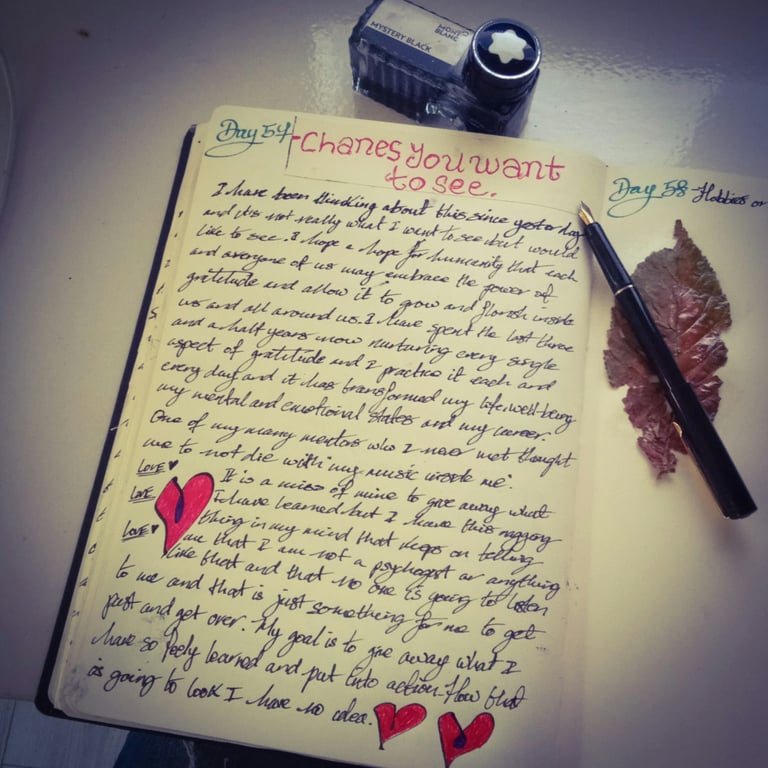 MONT
BLANC
MYSTERY BLACK
Day 54
Chanes you want
to see.
I have been thinking about this since yesterday
and its not really what I want to see but would
like to see. I hope a hope for humenity that each
and everyone of us may embrace the power of
gratitude and allow it to grow and florish inside
us and all around us. I have spent the last three
and a half years now nurturing every single
aspect of gratitude and I practice it each and
every day and it has transformed my life, well-being
my mental and emotional states and my career.
One of my many mentors who I never met thought
me to not die with my music inside me".
LOVE
It is a miss of mine to give away what
LOVE
I have learned but I have this nagging
thing in my mind that keeps on telling
LOVE
me that I am not a psycholgist or anything
like that and that no one is going to listen
to me and that is just something for me to get
past and get over. My goal is to give away what I
have so feely learned and put into action. How that
is going to look I have no idea.
Day 58 Hobbies or